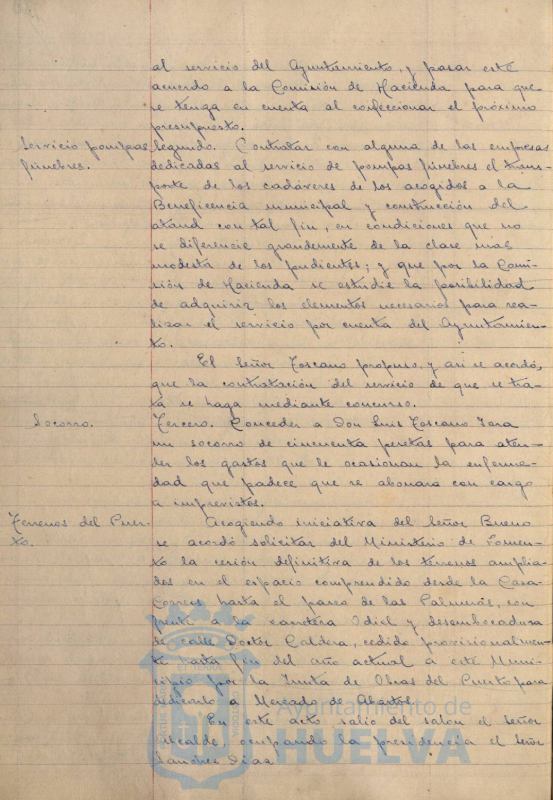 al servicio del Ayuntamiento, y pasar este
acuerdo a la Comisión de Hacienda para que
se tenga en cuenta al confeccionar el próximo
presupuesto.
Servicio pompas
fúnebres.
Segundo. Contratar con alguna de las empresas
dedicadas al servicio de pompas fúnebres el trans-
porte de los cadáveres de los acogidos a la
Beneficencia municipal y construcción del
ataud con tal fin, en condiciones que no
se diferencie grandemente de la clase más
modesta de los pudientes; y que por la Comi-
sión de Hacienda se estudie la posibilidad
de adquirir los elementos necesarios para rea-
lizar el servicio por cuenta del Ayuntamien-
to.
El Señor Toscano propuso, y así se acordó,
que la contratación del servicio de que se tra-
ta se haga mediante concurso.
Socorro.
Tercero. Conceder a Don Luis Toscano Jara
un socorro de cincuenta pesetas para aten-
der los gastos que le ocasionan la enferme-
dad que padece que se abonará con cargo
a imprevistos.
Terrenos del Puer-
to.
Acogiendo iniciativa del Señor Bueno
se acordó solicitar del Ministerio de Fomen-
to la cesión definitiva de los terrenos amplia-
dos en el espacio comprendido desde la Casa
Correos hasta el paseo de las Palmeras, con
frente a la carretera Odiel y desembocadura
de calle Doctor Caldera, cedido provisionalmen-
te hasta fin del año actual a este Muni-
cipio por la Junta de Obras del Puerto para
dedicarlo a Mercado de Abastos.
En este acto salió del salón el Señor
Alcalde, ocupando la presidencia el Señor
Sanchez Díaz
Ayuntamiento de
HUELVA